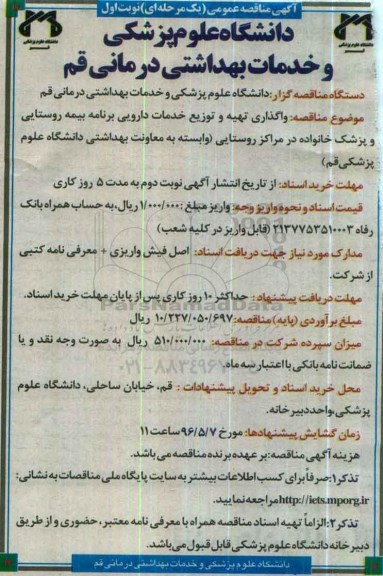 آگهی مناقصه عمومی (یک مرحله ای) نوبت اول
دانشگاه علوم پزشکی
و خدمات بهداشتی درمانی قم
دستگاه مناقصه گزار: دانشگاه علوم پزشکی و خدمات بهداشتی درمانی قم
موضوع مناقصه: واگذاری تهیه و توزیع خدمات دارویی برنامه بیمه روستایی
و پزشک خانواده در مراکز روستایی (وابسته به معاونت بهداشتی دانشگاه علوم
پزشکی قم)
مهلت خرید اسناد: از تاریخ انتشار آگهی نوبت دوم به مدت ۵ روز کاری
قیمت اسناد و نحوه واریز وجه: واریز مبلغ: ۱/۰۰۰/۰۰۰ ریال، به حساب همراه بانک
رفاه ۲۱۳۷۷۵۳۵۱۰۰۰۳ (قابل واریز در کلیه شعب)
مدارک مورد نیاز جهت دریافت اسناد: اصل فیش واریزی + معرفی نامه کتبی
از شرکت.
مهلت دریافت پیشنهاد: حداکثر ۱۰ روز کاری پس از پایان مهلت خرید اسناد.
مبلغ برآوردی (پایه) مناقصه: ۱۰/۲۲۷/۰۵۰/۶۹۷ ریال
میزان سپرده شرکت در مناقصه: ۵۱۰/۰۰۰/۰۰۰ ریال به صورت وجه نقد و یا
ضمانت نامه بانکی با اعتبار سه ماه.
محل خرید اسناد و تحویل پیشنهادات: قم، خیابان ساحلی، دانشگاه علوم
پزشکی، واحد دبیرخانه.
زمان گشایش پیشنهادها: مورخ ۹۶/۵/۷ ساعت ۱۱
هزینه آگهی مناقصه: بر عهده برنده مناقصه می باشد.
تذکر ۱: صرفاً برای کسب اطلاعات بیشتر به سایت پایگاه ملی مناقصات به نشانی:
http://iets.mporg.ir مراجعه نمایید.
تذکر ۲: الزاماً تهیه اسناد مناقصه همراه با معرفی نامه معتبر، حضوری و از طریق
دبیرخانه دانشگاه علوم پزشکی قابل قبول می باشد.
دانشگاه علوم پزشکی و خدمات بهداشتی درمانی قم